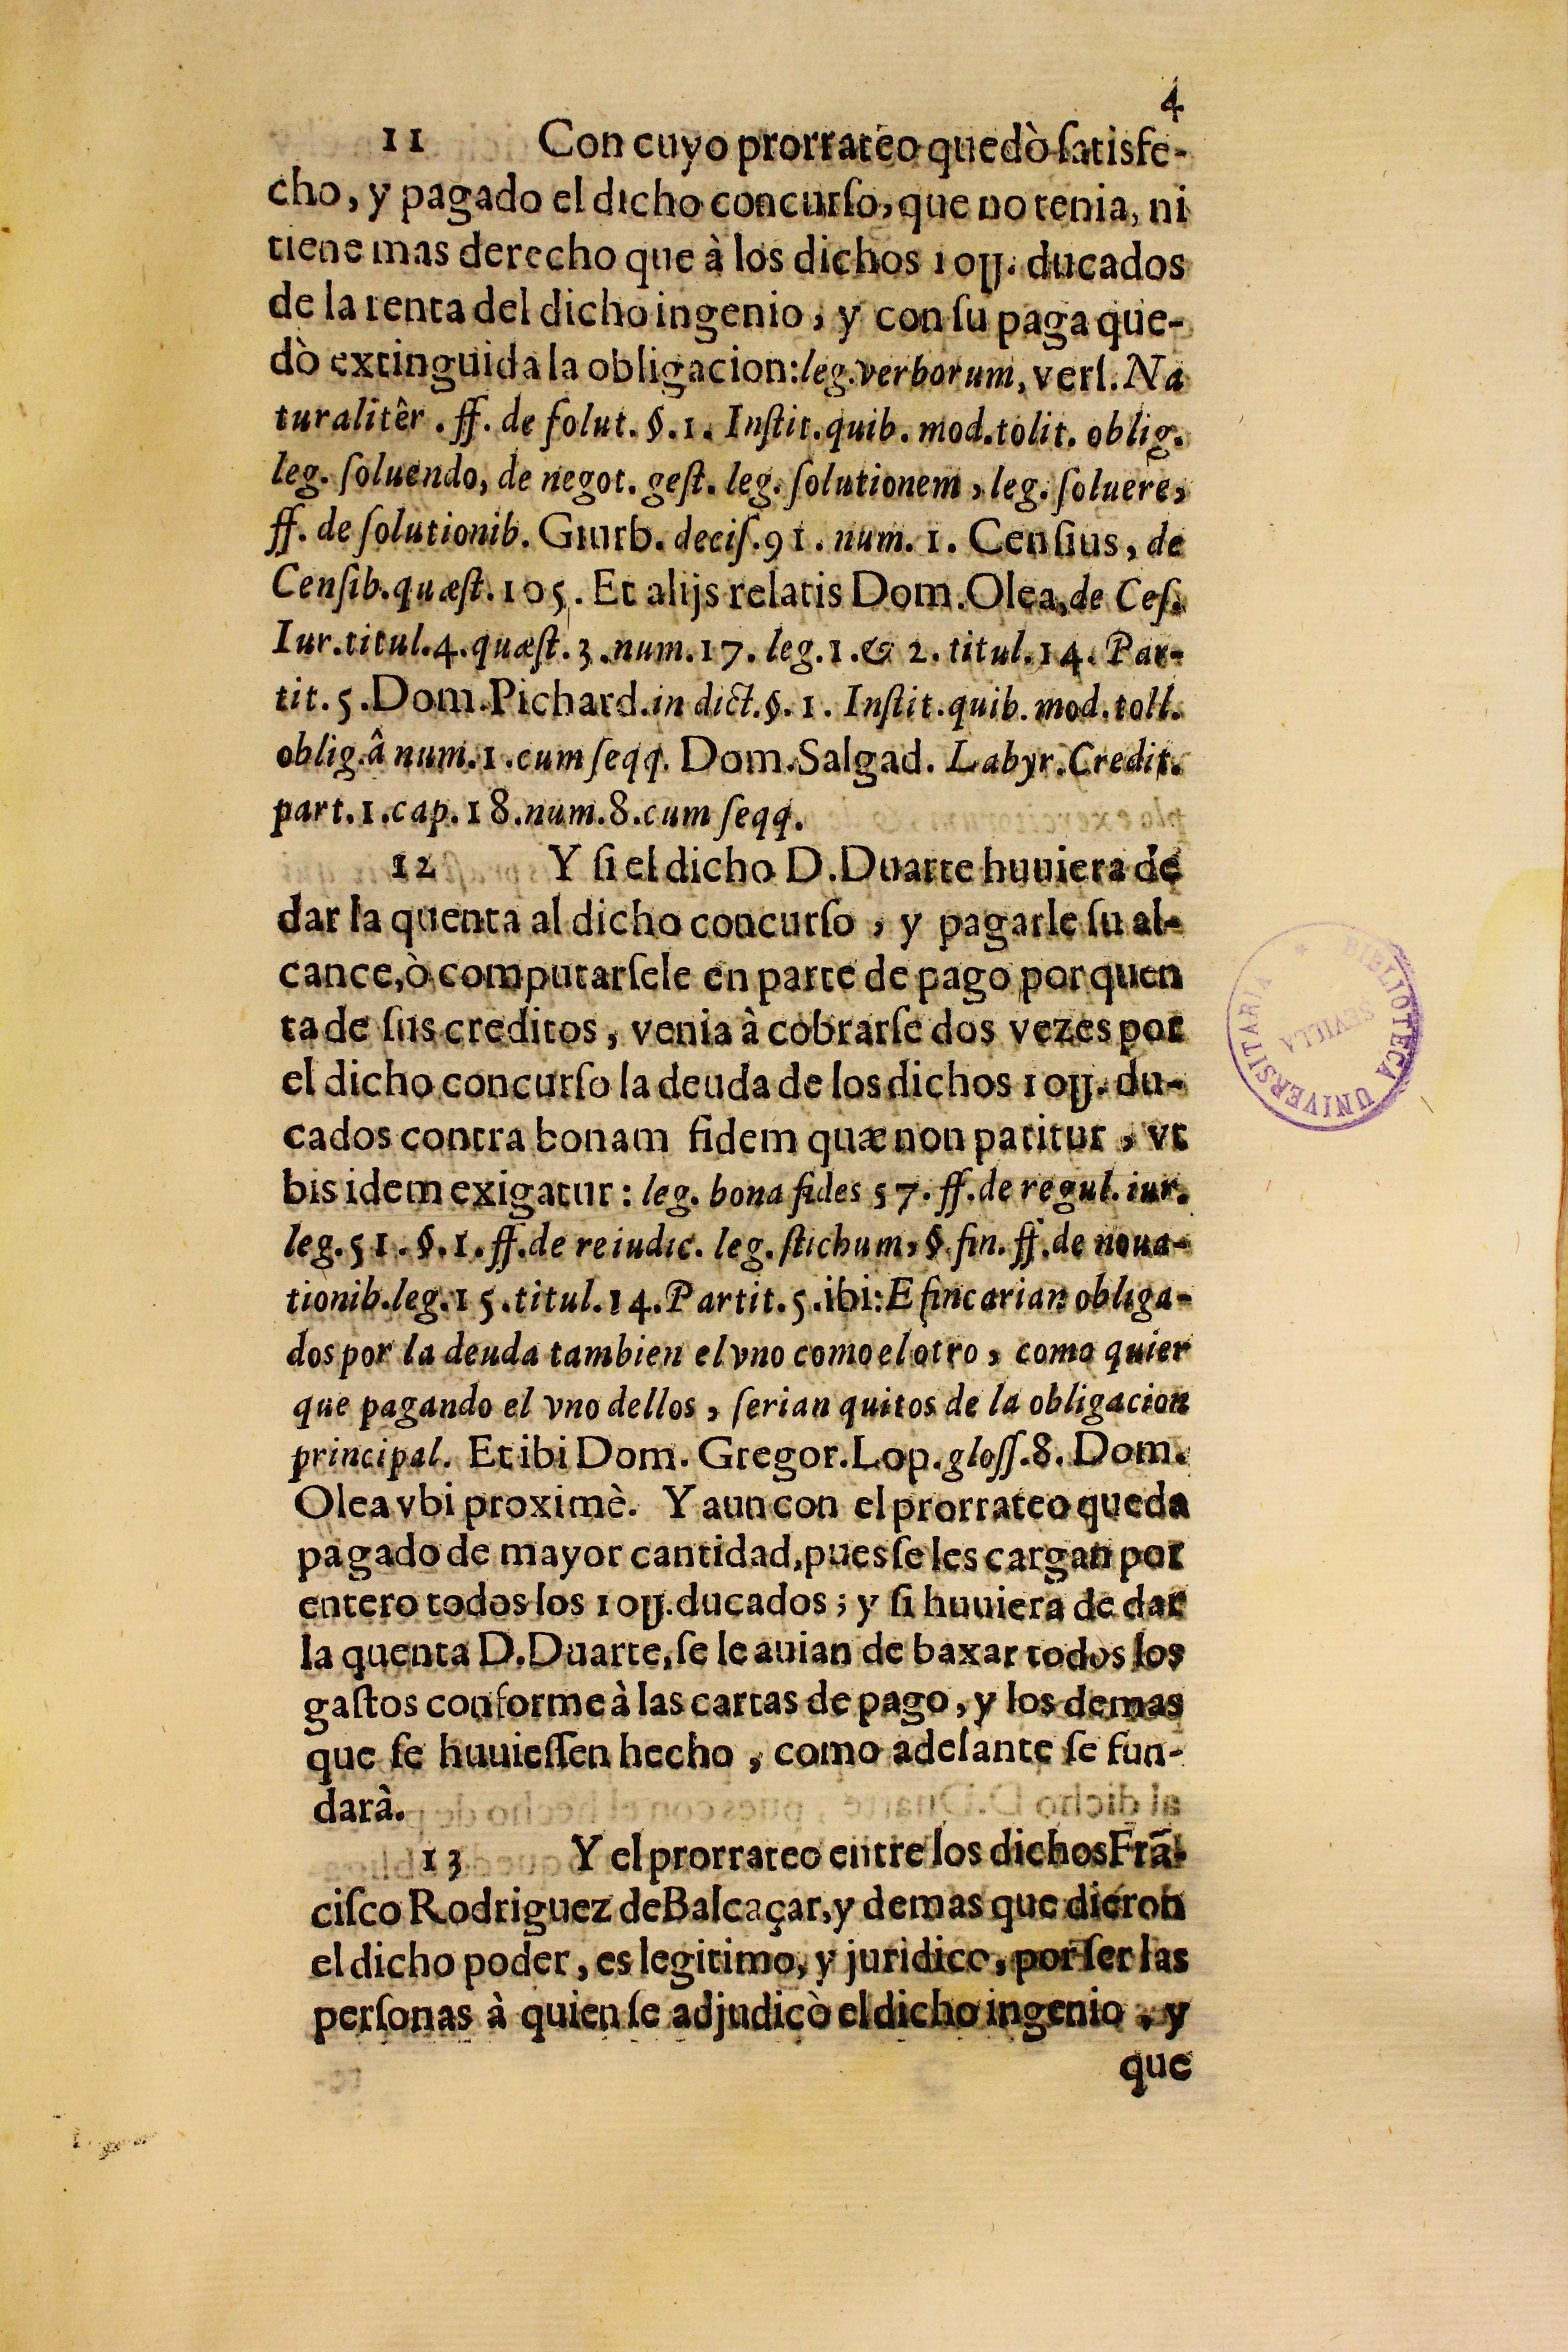 4
11 Con cuyo prorrateo quedò ſatisfe-
cho, y pagado el dicho concurſo, que no tenia, ni
tiene mas derecho que à los dichos 10U. ducados
de la renta del dicho ingenio, y con ſu paga que-
dò extinguida la obligacion: leg. verborum, verſ. Na
turalitêr. ff. de ſolut. §. 1. Inſtit. quib. mod. tolit. oblig.
leg. ſoluendo, de negot. geſt. leg. ſolutionem, leg. ſoluere,
ff. de ſolutionib. Giurb. deciſ. 91. num. 1. Cenſius, de
Cenſib. quæſt. 105. Et alijs relatis Dom. Olea, de Ceſ.
Iur. titul. 4. quæſt. 3. num. 17. leg. 1. & 2. titul. 14. Par-
tit. 5. Dom. Pichard. in dict. §. 1. Inſtit. quib. mod. toll.
oblig. â num. 1. cum ſeqq. Dom. Salgad. Labyr. Credit.
part. 1. cap. 18. num. 8. cum ſeqq.
12 Y ſi el dicho D. Duarte huuiera de
dar la quenta al dicho concurſo, y pagarle ſu al-
cance, ò computarſele en parte de pago por quen
ta de ſus creditos, venia à cobrarſe dos vezes por
el dicho concurſo la deuda de los dichos 10U. du-
cados contra bonam fidem quæ non patitur, vt
bis idem exigatur: leg. bona fides 57. ff. de regul. iur.
leg. 51. §. 1. ff. de re iudic. leg. ſtichum, §. fin. ff. de noua-
tionib. leg. 15. titul. 14. Partit. 5. ibi: E fincarian obliga-
dos por la deuda tambien el vno como el otro, como quier
que pagando el vno dellos, ſerian quitos de la obligacion
principal. Et ibi Dom. Gregor. Lop. gloſſ. 8. Dom.
Olea vbi proximè. Y aun con el prorrateo queda
pagado de mayor cantidad, pues ſe les cargan por
entero todos los 10U. ducados; y ſi huuiera de dar
la quenta D. Duarte, ſe le auian de baxar todos los
gaſtos conforme à las cartas de pago, y los demas
que ſe huuieſſen hecho, como adelante ſe fun-
darà.
13 Y el prorrateo entre los dichos Frā-
ciſco Rodriguez de Balcaçar, y demas que dieron
el dicho poder, es legitimo, y juridico, por ſer las
perſonas à quien ſe adjudicò el dicho ingenio, y
que
BIBLIOTECA UNIVERSITARIA
SEVILLA